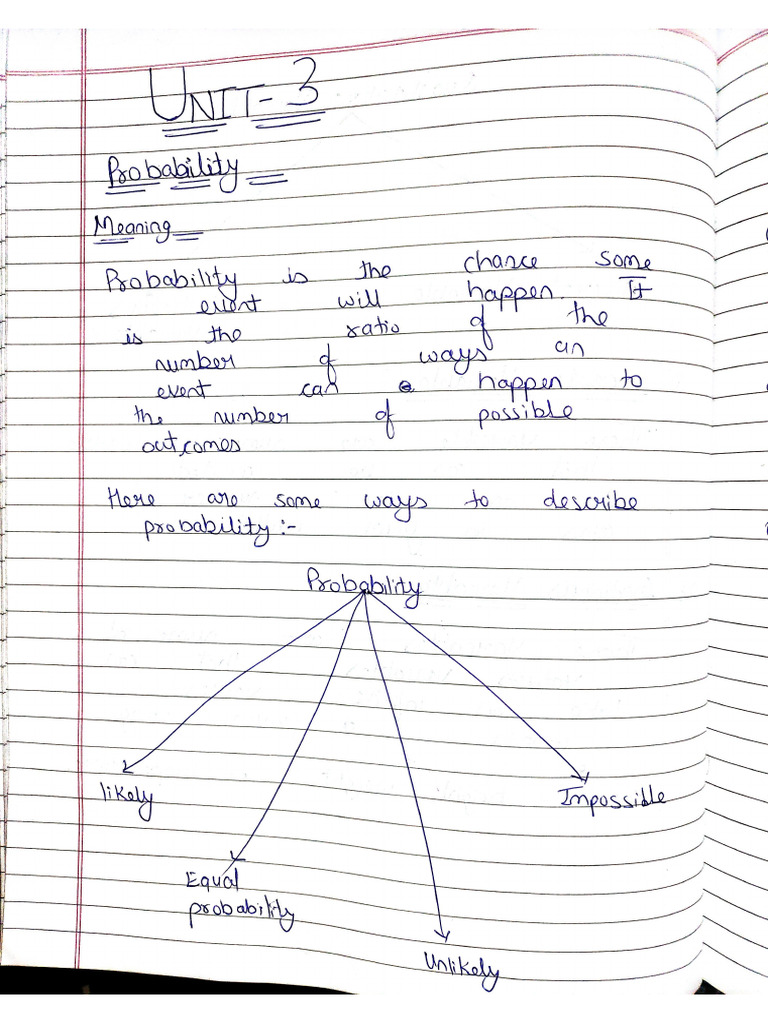 UNIT-3
Probability
Meaning
Probability is the chance some
event will happen. It
is the ratio of the
number of ways an
event can happen to
the number of possible
outcomes
Here are some ways to describe
probability:-
Probability
likely
Impossible
Equal
probability
Unlikely